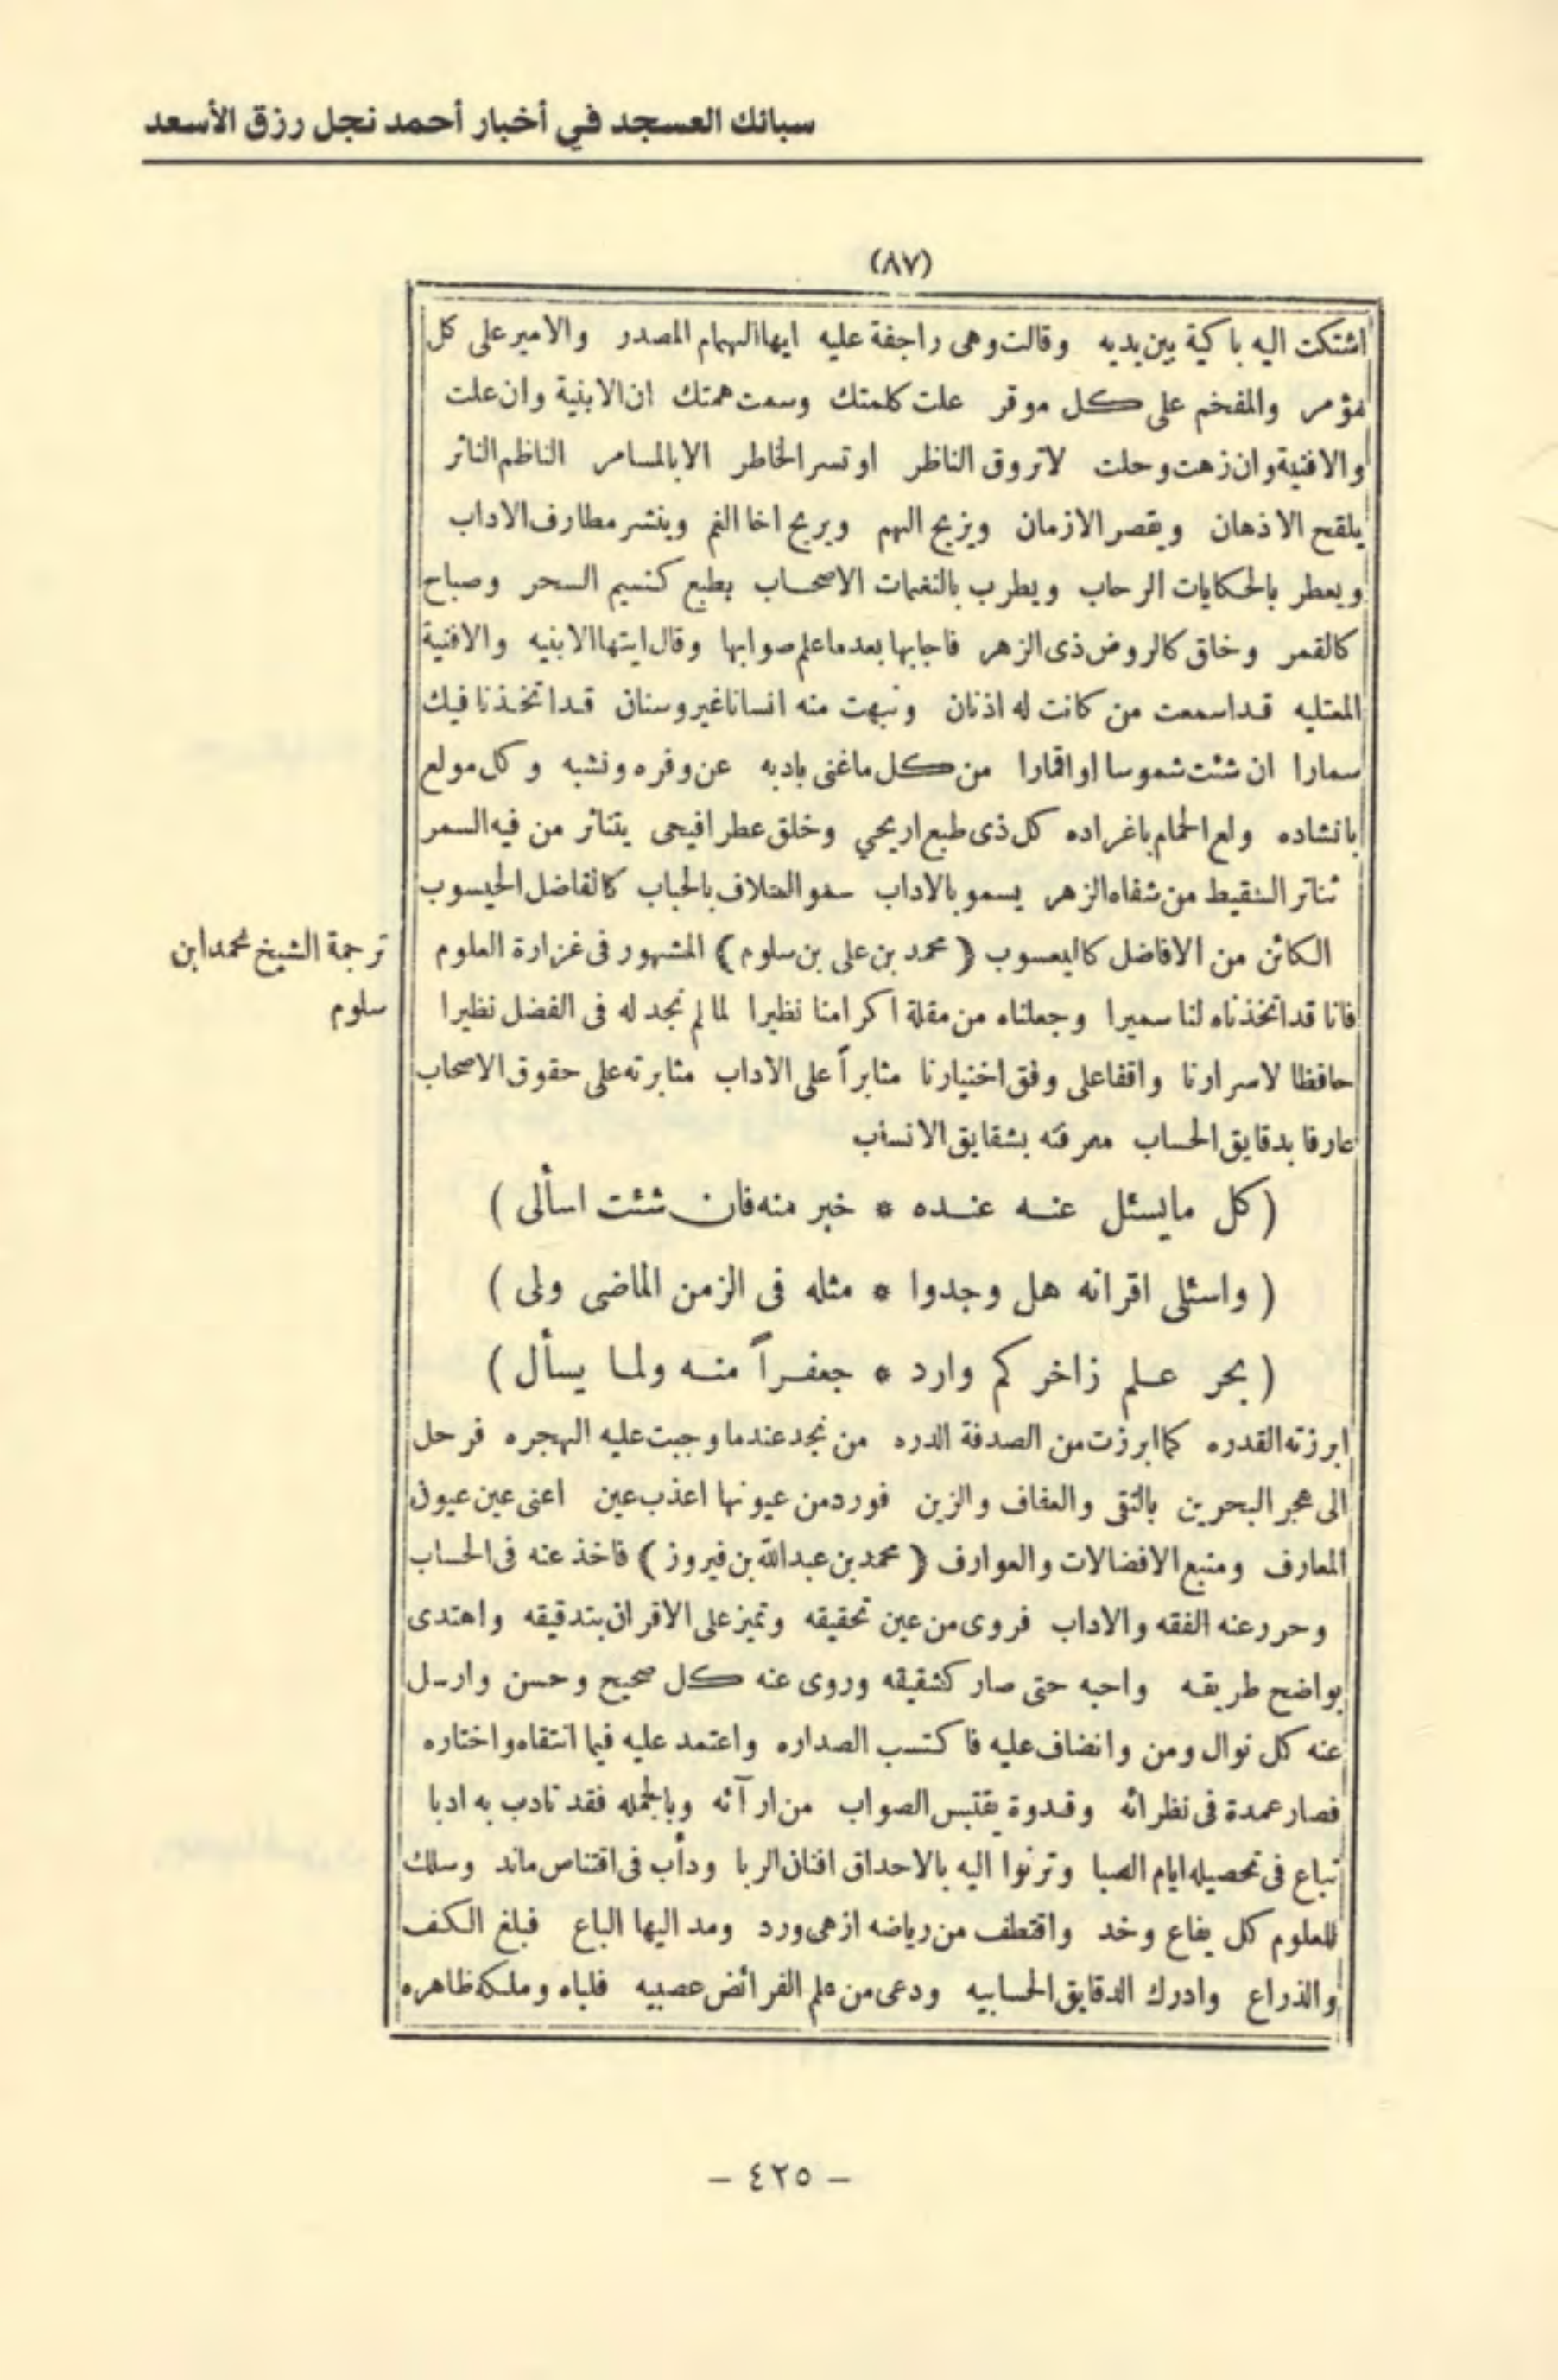 سبائك العسجد في أخبار أحمد نجل رزق الأسعد
(٨٧)
اشتكت اليه باكية بين يديه وقالت وهى راجفة عليه ايها الهمام المصدر والامير على كل
مؤمر والمفخم على كل موقر علت كلمتك وسمت همتك ان الابنية وان علت
والافنية وان زهت وحلت لا تروق الناظر او تسر الخاطر الا بالمسامر الناظم الناثر
يلقح الاذهان ويقصر الازمان ويزيح الهم ويريح اخا الغم وينشر مطارف الاداب
ويعطر بالحكايات الرحاب ويطرب بالنغمات الاصحاب بطبع كنسيم السحر وصباح
كالقمر وخلق كالروض ذى الزهر فاجابها بعدما علم صوابها وقال ايتها الابنيه والافنية
المعتليه قد اسمعت من كانت له اذنان ونبهت منه انسانا غير وسنان قد اتخذنا فيك
سمارا ان شئت شموسا او اقمارا من كل ما غنى بادبه عن وفره ونشبه وكل مولع
بانشاده ولع الحمام باغراده كل ذى طبع اريحي وخلق عطر افيحى يتناثر من فيه السمر
تناثر السقيط من شفاه الزهر يسمو بالاداب سمو السلاف بالحباب كالفاضل الحيسوب
الكائن من الافاضل كاليعسوب (محمد بن على بن سلوم) المشهور فى غزارة العلوم
ترجمة الشيخ محمد ابن
سلوم
فانا قد اتخذناه لنا سميرا وجعلناه من مقلة اكرامنا نظيرا لما لم نجد له فى الفضل نظيرا
حافظا لاسرارنا واقفا على وفق اختيارنا مثابراً على الاداب مثابرته على حقوق الاصحاب
عارفا بدقايق الحساب معرفته بشقايق الانساب
(كل مايسئل عنه عنده * خبر منه فان شئت اسألى)
(واسئلى اقرانه هل وجدوا * مثله فى الزمن الماضى ولى)
(بحر علم زاخر كم وارد * جعفراً منه ولما يسأل)
ابرزته القدره كما ابرزت من الصدفة الدره من نجد عندما وجبت عليه الهجره فرحل
الى هجر البحرين بالتقى والعفاف والزين فورد من عيونها اعذب عين اعنى عين عيون
المعارف ومنبع الافضالات والعوارف (محمد بن عبد الله بن فيروز) فاخذ عنه فى الحساب
وحرر عنه الفقه والاداب فروى من عين تحقيقه وتميز على الاقران بتدقيقه واهتدى
بواضح طريقه واحبه حتى صار كشقيقه وروى عنه كل صحيح وحسن وارسل
عنه كل نوال ومن وانضاف عليه فاكتسب الصداره واعتمد عليه فيما انتقاه واختاره
فصار عمدة فى نظرائه وقدوة يقتبس الصواب من ارآئه وبالجمله فقد تادب به ادبا
تباع فى تحصيله ايام الصبا وترنوا اليه بالاحداق افنان الربا ودأب فى اقتناص ماند وسلك
للعلوم كل يفاع وخد واقتطف من رياضه ازهى ورد ومد اليها الباع فبلغ الكف
والذراع وادرك الدقايق الحسابيه ودعى من علم الفرائض عصبيه فلباه وملكه ظاهره
- ٤٢٥ -